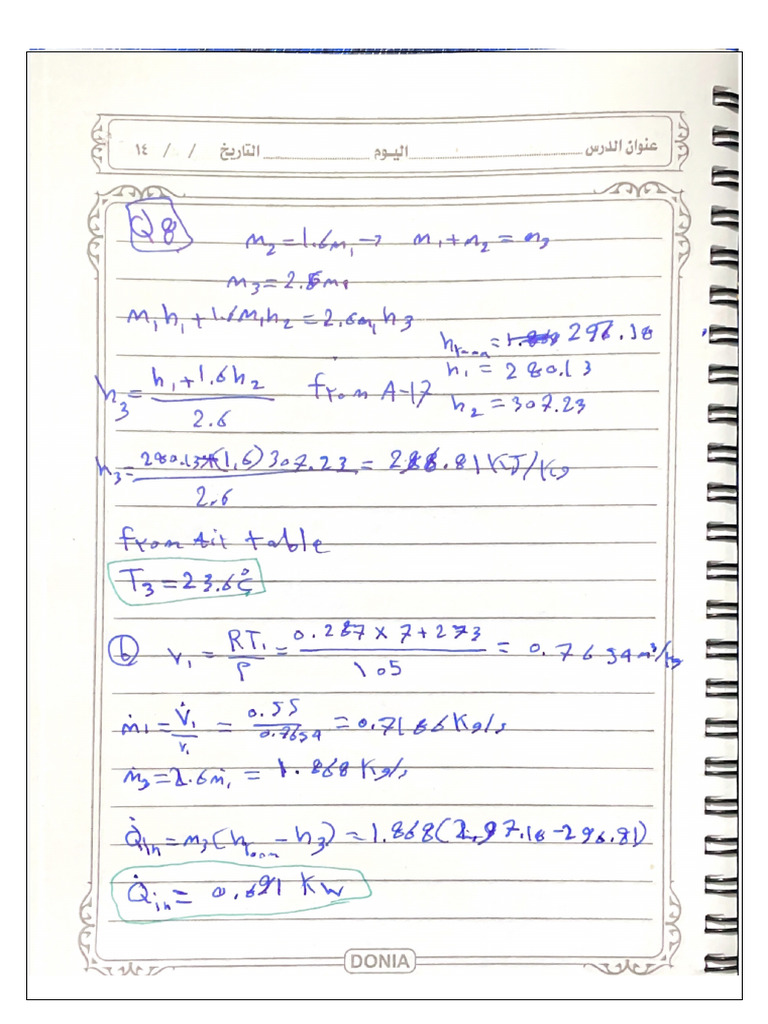 عنوان الدرس اليوم التاريخ / / ١٤
Q8
m₂ = 1.6m₁ → m₁ + m₂ = m₃
m₃ = 2.6m₁
m₁h₁ + 1.6m₁h₂ = 2.6m₁h₃
h room = 296.18
h₁ = 280.13
h₂ = 307.23
h₃ = (h₁ + 1.6h₂) / 2.6 from A-17
h₃ = (280.13 + (1.6) 307.23) / 2.6 = 296.81 KJ/Kg
from air table
T₃ = 23.6 °C
b v₁ = RT₁ / P = (0.287 × 7 + 273) / 105 = 0.7654 m³/kg
ṁ₁ = V̇₁ / v₁ = 0.55 / 0.7654 = 0.7186 Kg/s
ṁ₃ = 2.6ṁ₁ = 1.868 Kg/s
Q̇in = m₃ (h room − h₃) = 1.868 (297.18 − 296.81)
Q̇in = 0.691 KW
DONIA